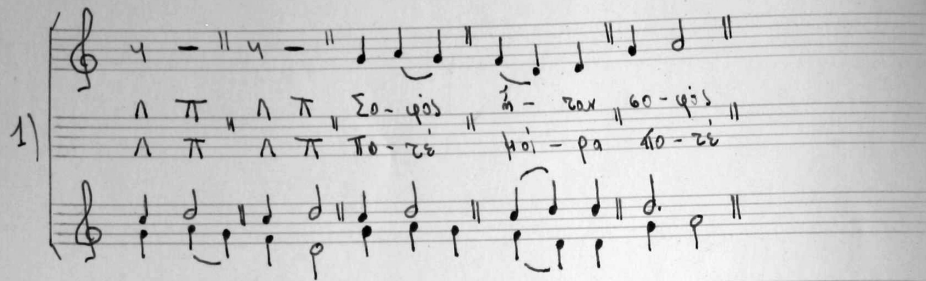 Λ Π Λ Π Σο-φός ἦ-τον σο-φός
1)
Λ Π Λ Π πο-τὲ μοί-ρα πο-τὲ